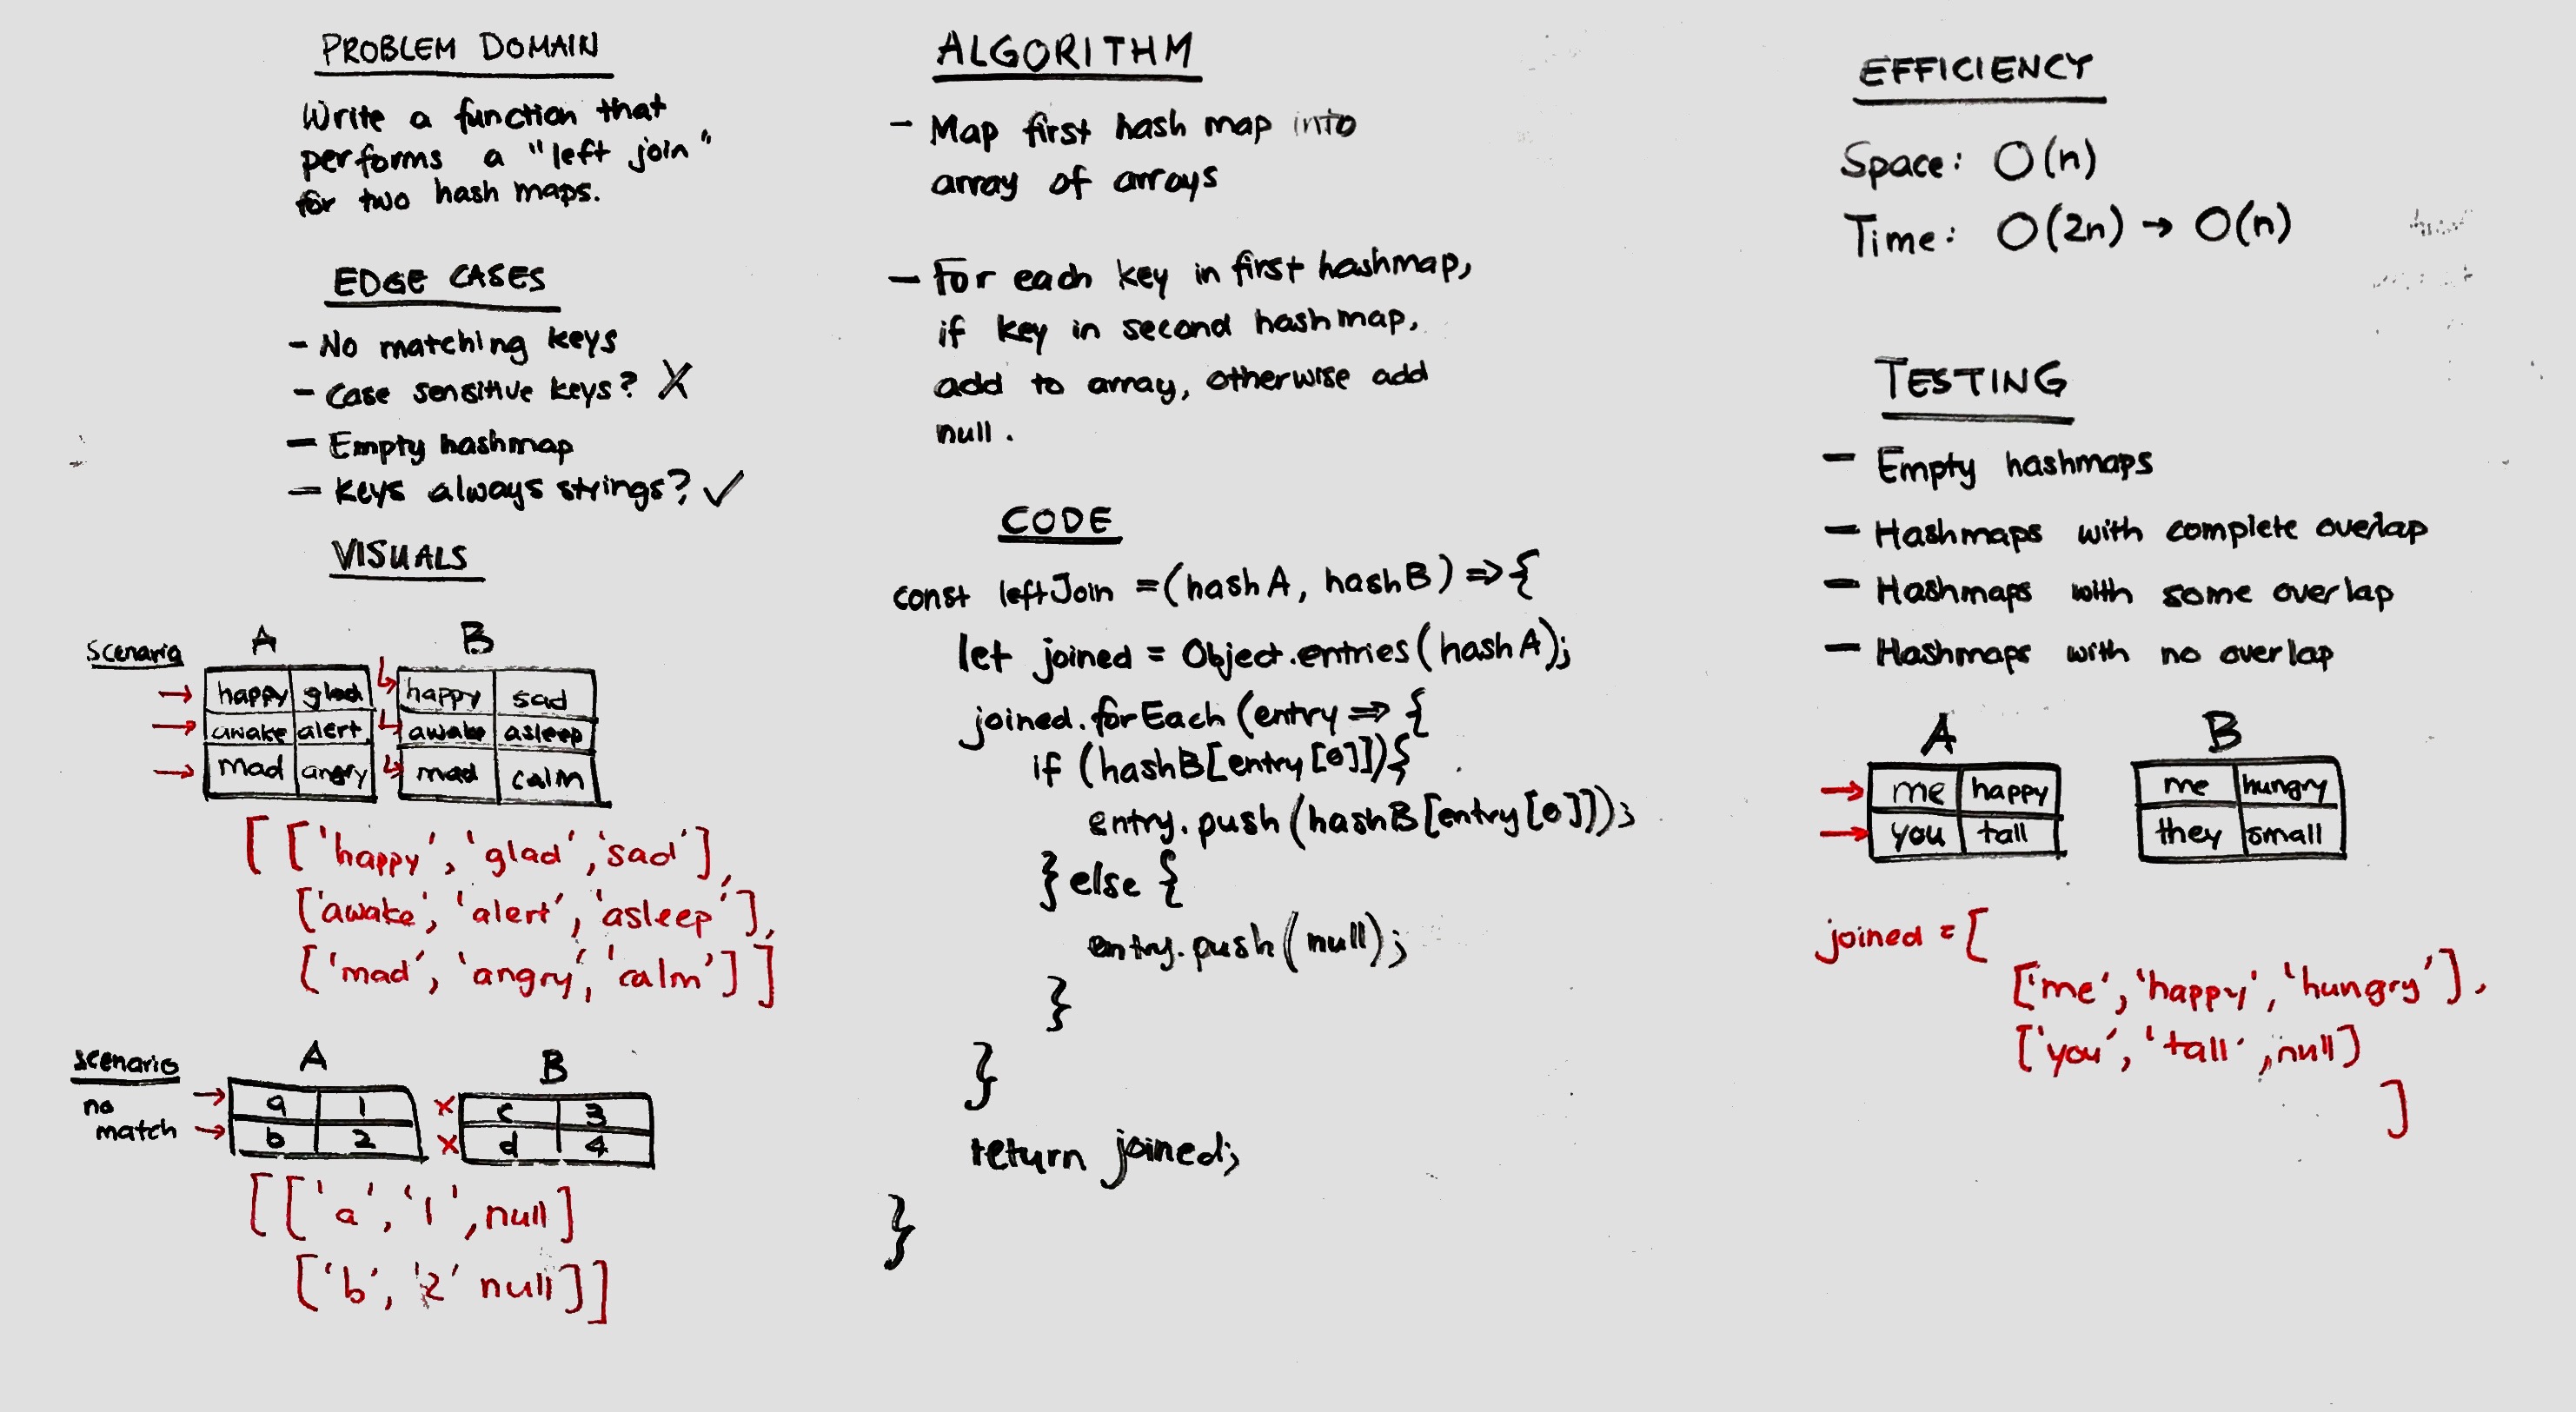 PROBLEM DOMAIN
Write a function that
performs a "left join"
for two hash maps.
EDGE CASES
- No matching keys
- Case sensitive keys? X
- Empty hashmap
- Keys always strings? ✓
VISUALS
Scenario
A B
→ happy glad ↳ happy sad
→ awake alert ↳ awake asleep
→ mad angry ↳ mad calm
[['happy', 'glad', 'sad'],
['awake', 'alert', 'asleep'],
['mad', 'angry', 'calm']]
scenario
no
match
A B
→ a 1 x c 3
→ b 2 x d 4
[['a', '1', null]
['b', '2' null]]
ALGORITHM
- Map first hash map into
array of arrays
- For each key in first hashmap,
if key in second hashmap,
add to array, otherwise add
null.
CODE
const leftJoin = (hashA, hashB) => {
let joined = Object.entries(hashA);
joined.forEach (entry => {
if (hashB[entry[0]]){
entry.push(hashB[entry[0]]);
} else {
entry.push(null);
}
}
return joined;
}
EFFICIENCY
Space: O(n)
Time: O(2n) → O(n)
TESTING
- Empty hashmaps
- Hashmaps with complete overlap
- Hashmaps with some overlap
- Hashmaps with no overlap
A B
→ me happy me hungry
→ you tall they small
joined = [
['me', 'happy', 'hungry'],
['you', 'tall', null]
]